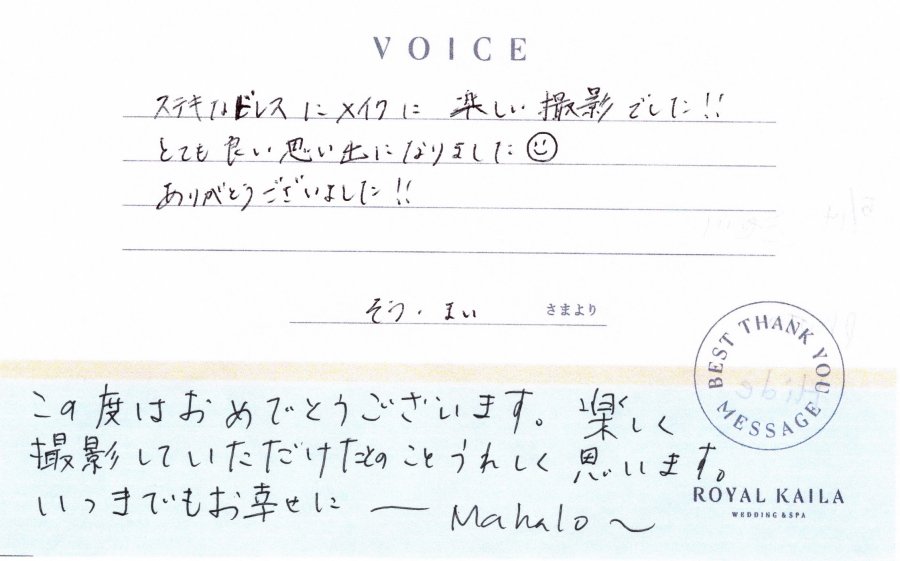 VOICE
ステキなドレスにメイクに 楽しい撮影でした!!
とても良い思い出になりました☺
ありがとうございました!!
そう・まい さまより
BEST THANK YOU MESSAGE
この度はおめでとうございます。楽しく
撮影していただけたとのことうれしく思います。
いつまでもお幸せに ー Mahalo ～
ROYAL KAILA
WEDDING & SPA